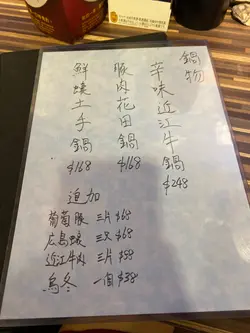 鍋物
辛味近江牛鍋 $248
豚肉花田鍋 $168
鮮蠔土手鍋 $168
追加
葡萄豚 三片 $68
広島蠔 三只 $68
近江牛肉 三片 $88
烏冬 一個 $38